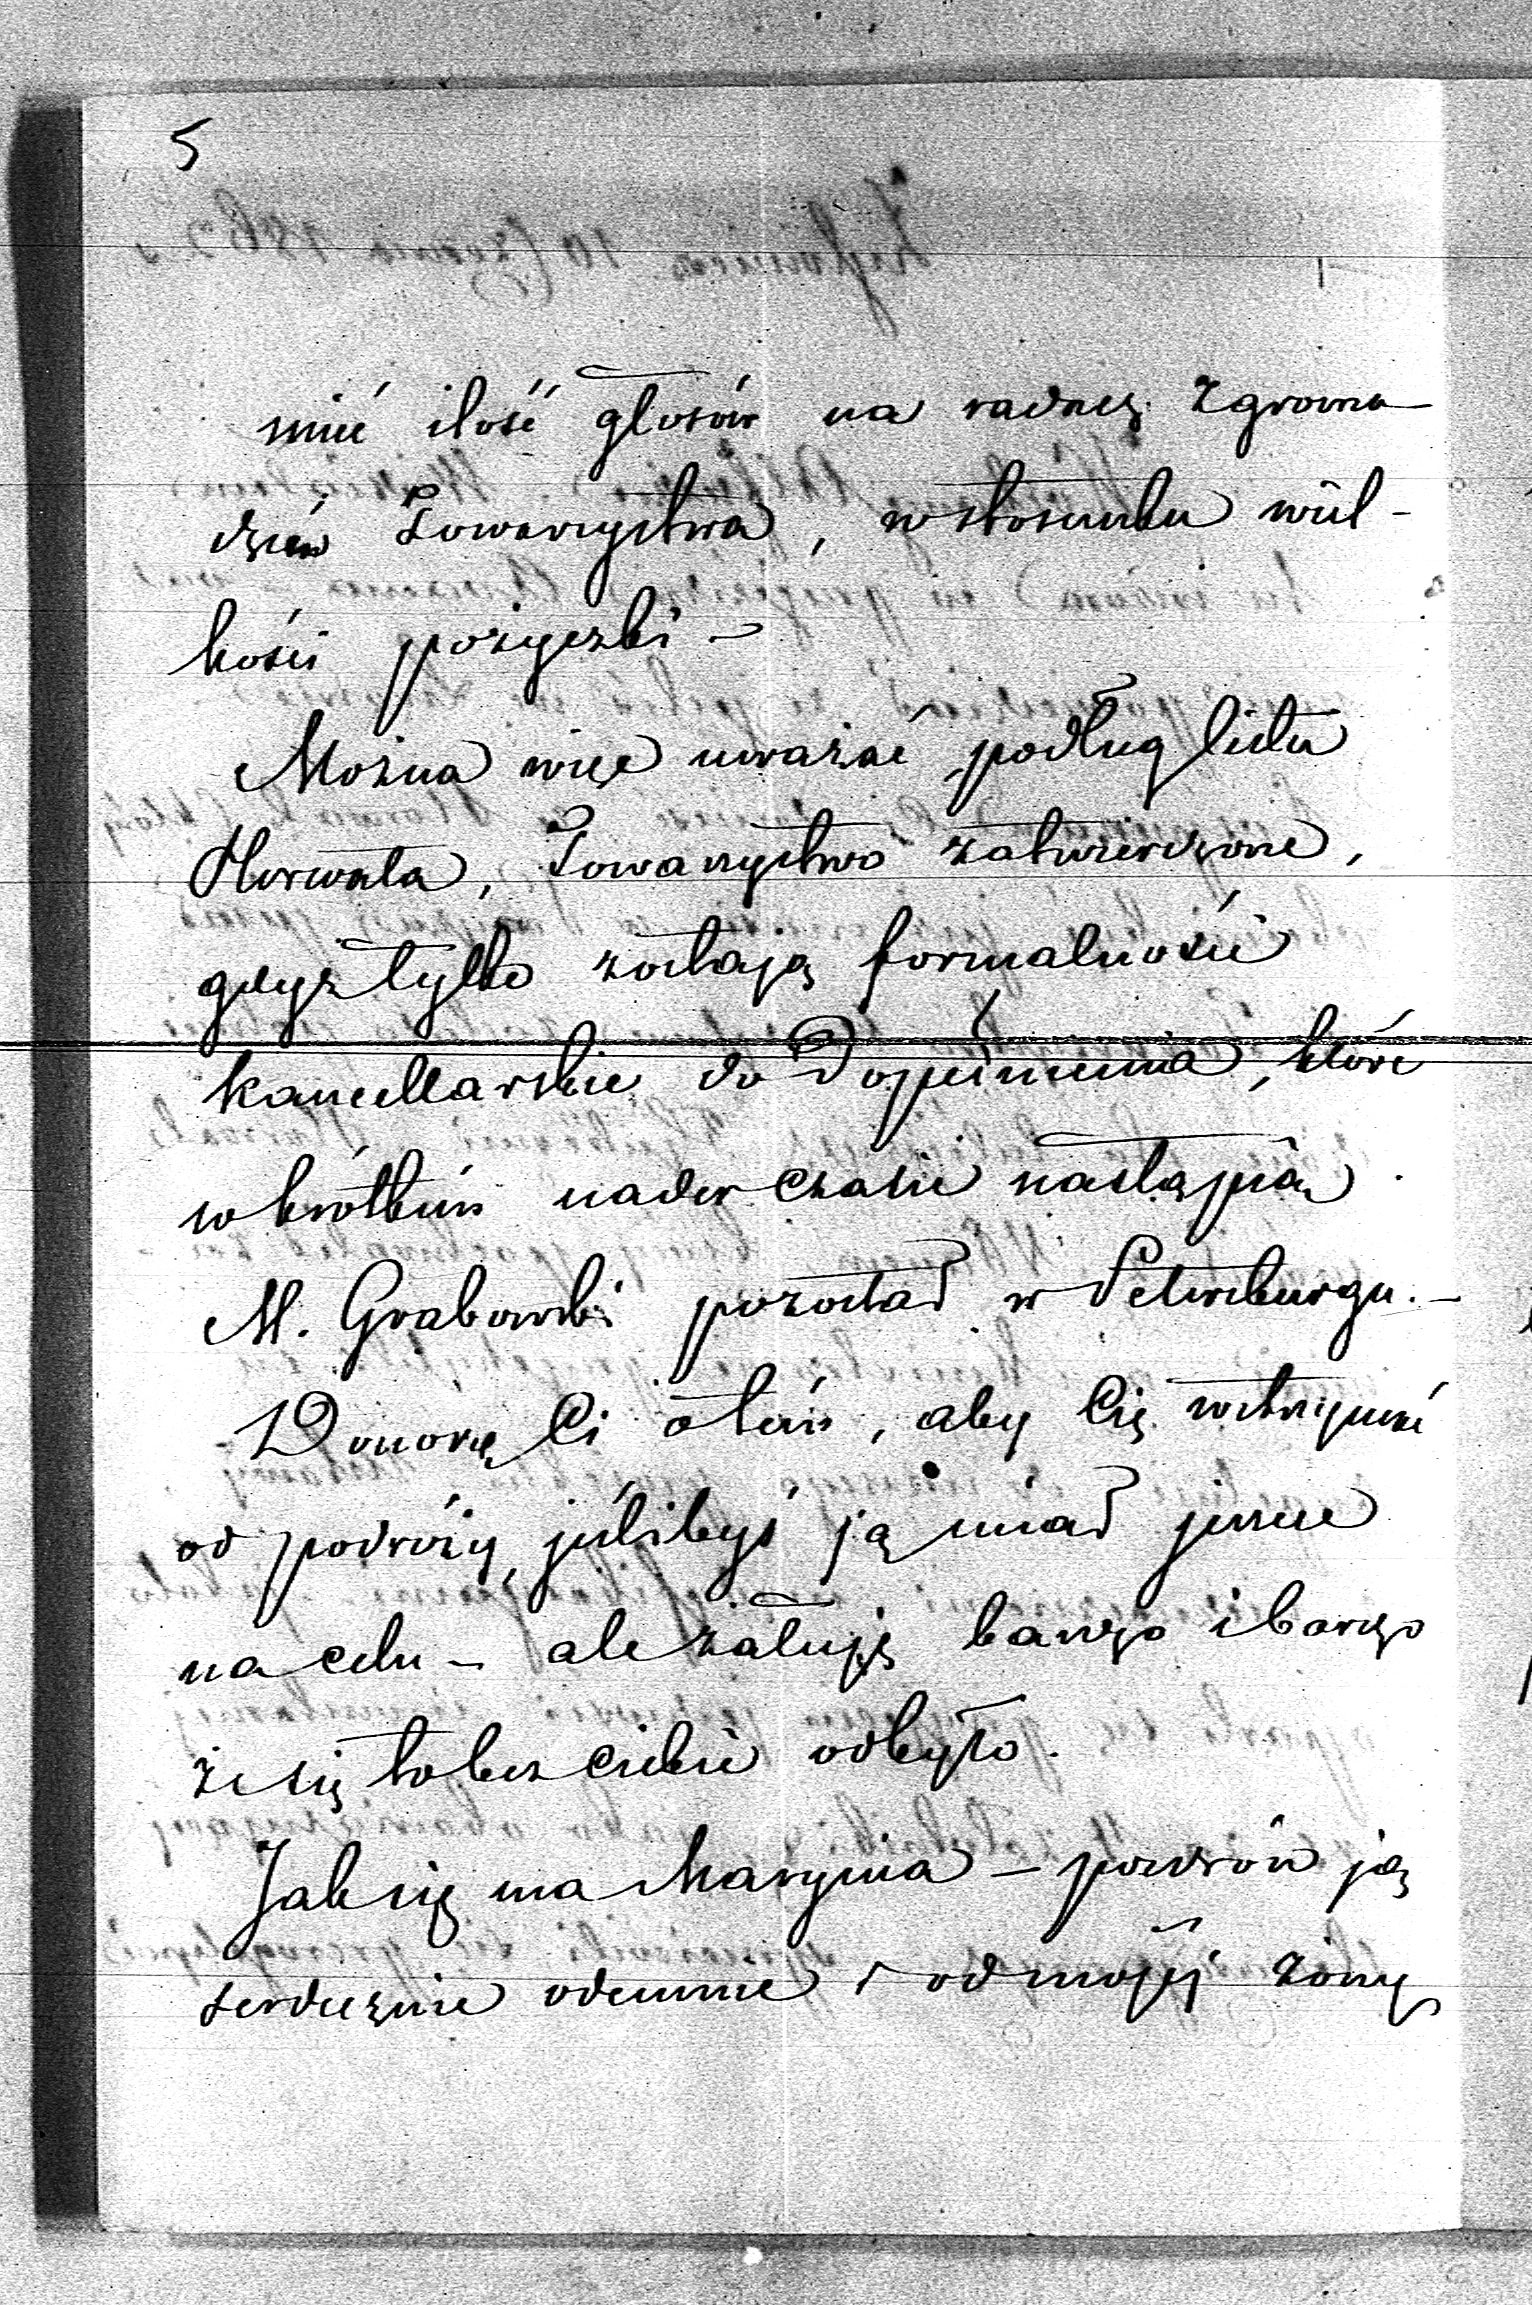 5
mieć ilość głosów na radach Zgroma-
dzień Towarzystwa, w stosunku wiel-
kości pożyczki —
Można więc uważać podług listu
Horwata, Towarzystwo zatwierdzone,
gdyż tylko zostają formalności
kancellarskie do dopełnienia, które
w krótkim nader czasie nastąpią.
M. Grabowski pozostał w Petersburgu. —
Donoszę Ci o tém, aby Cię wstrzymać
od podróży, jeślibyś ją miał jeszcze
na celu — ale żałuję bardzo i bardzo
że się to bez ciebie odbyło.
Jak się ma Marynia — pozdrów ją
serdecznie odemnie i od mojéj żony